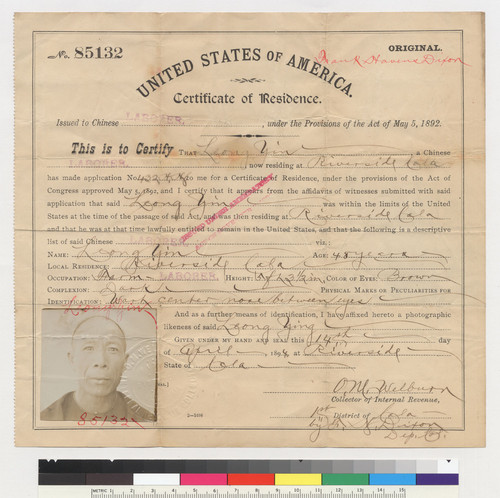 No. 85132
ORIGINAL.
UNITED STATES OF AMERICA.
Certificate of Residence.
Issued to Chinese LABORER, under the Provisions of the Act of May 5, 1892.
This is to Certify THAT Leong Yin a Chinese
LABORER, now residing at Riverside Cala
has made application No. to me for a Certificate of Residence, under the provisions of the Act of
Congress approved May 5, 1892, and I certify that it appears from the affidavits of witnesses submitted with said
application that said Leong Yin was within the limits of the United
States at the time of the passage of said Act, and was then residing at Riverside Cala
and that he was at that time lawfully entitled to remain in the United States, and that the following is a descriptive
list of said Chinese LABORER viz.:
NAME: Leong Yin AGE: 48 years
LOCAL RESIDENCE: Riverside Cala
OCCUPATION: Farm LABORER HEIGHT: COLOR OF EYES: Brown
COMPLEXION: Dark PHYSICAL MARKS OR PECULIARITIES FOR
IDENTIFICATION: Mark center nose between eyes
And as a further means of identification, I have affixed hereto a photographic
likeness of said Leong Ying
GIVEN UNDER MY HAND AND SEAL this 14th day
of April, 1894, at Riverside
State of Cala
O. M. Welburn
Collector of Internal Revenue,
1st District of Cala
by Dixon
Dep
85132
2-5206